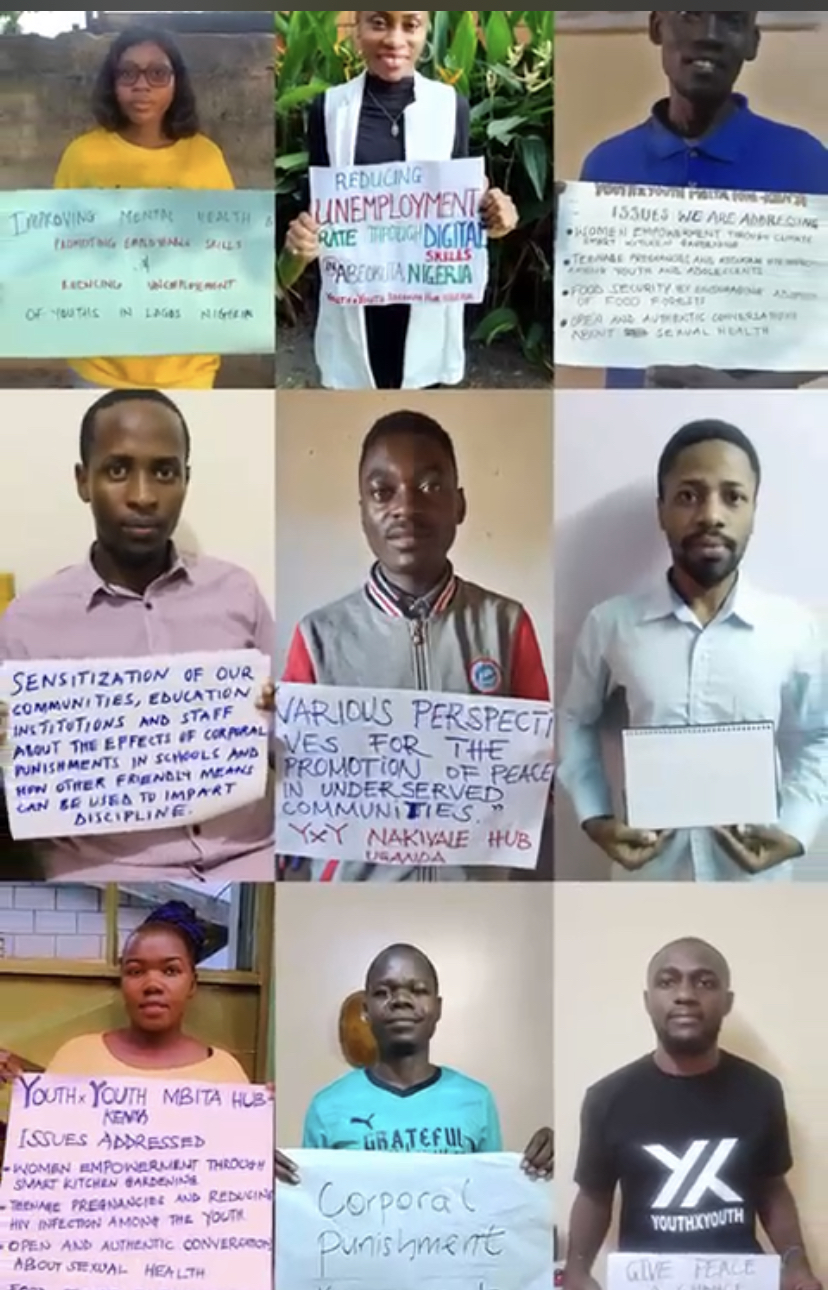 IMPROVING MENTAL HEALTH &
PROMOTING EMPLOYABLE SKILLS
&
REDUCING UNEMPLOYMENT
OF YOUTHS IN LAGOS NIGERIA
REDUCING
UNEMPLOYMENT
RATE THROUGH DIGITAL
SKILLS
IN ABEOKUTA NIGERIA
YOUTHXYOUTH MBITA HUB-KENYA
ISSUES WE ARE ADDRESSING
• WOMEN EMPOWERMENT THROUGH CLIMATE
SMART KITCHEN GARDENING
• TEENAGE PREGNANCIES AND
AMONG YOUTH AND ADOLESCENTS
• FOOD SECURITY BY ENCOURAGING
OF FOOD FORESTS
• OPEN AND AUTHENTIC CONVERSATIONS
ABOUT SEXUAL HEALTH
SENSITIZATION OF OUR
COMMUNITIES, EDUCATION
INSTITUTIONS AND STAFF
ABOUT THE EFFECTS OF CORPORAL
PUNISHMENTS IN SCHOOLS AND
HOW OTHER FRIENDLY MEANS
CAN BE USED TO IMPART
DISCIPLINE.
VARIOUS PERSPECTI
VES FOR THE
PROMOTION OF PEACE
IN UNDERSERVED
COMMUNITIES."
YXY NAKIVALE HUB
UGANDA
YOUTHXYOUTH MBITA HUB-
KENYA
ISSUES ADDRESSED
- WOMEN EMPOWERMENT THROUGH
SMART KITCHEN GARDENING
- TEENAGE PREGNANCIES AND REDUCING
HIV INFECTION AMONG THE YOUTH
- OPEN AND AUTHENTIC CONVERSATION
ABOUT SEXUAL HEALTH
GRATEFUL
Corporal
punishment
YX
YOUTHXYOUTH
GIVE PEACE